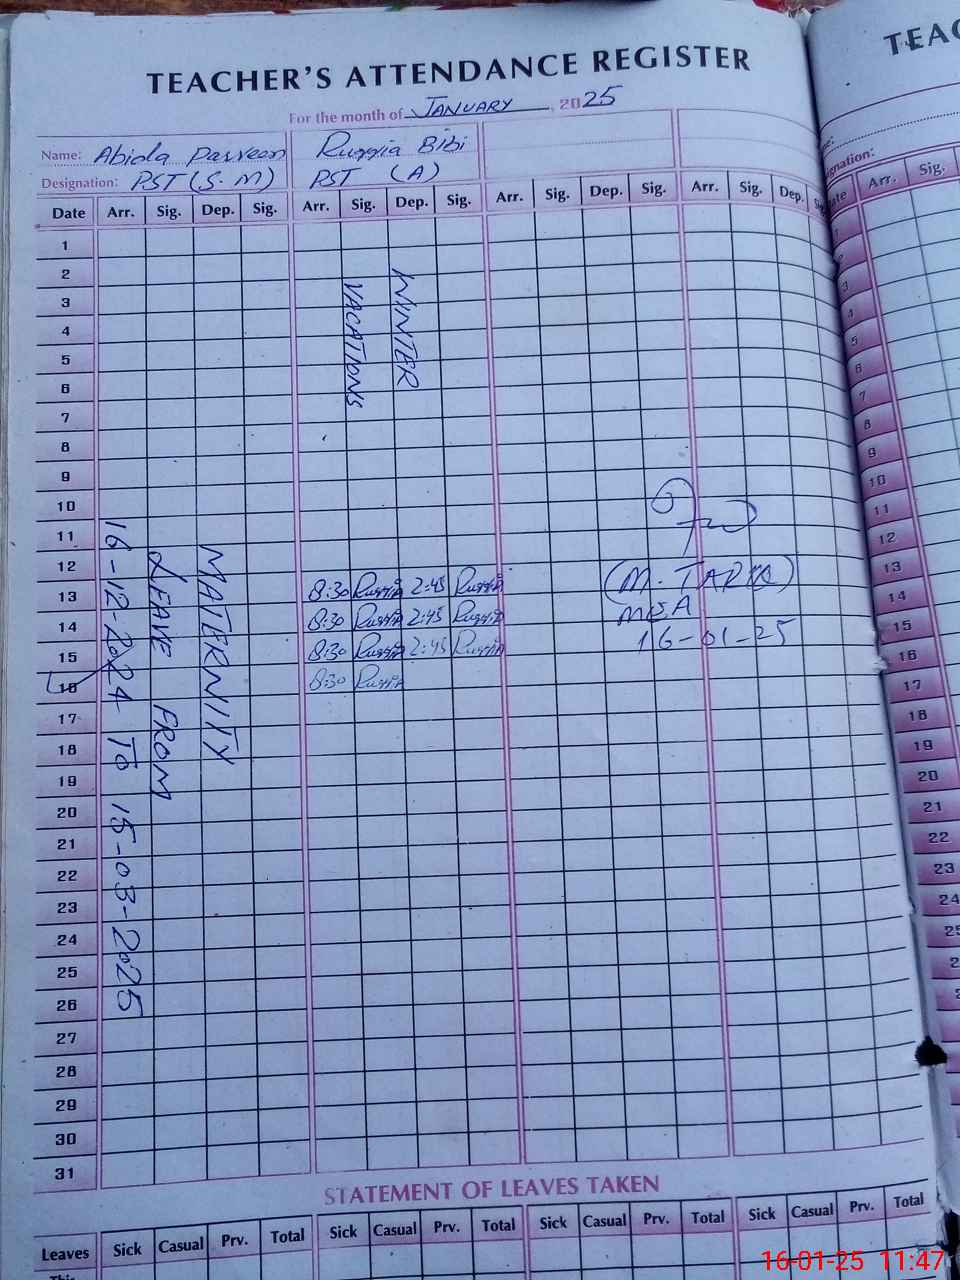 TEACHER'S ATTENDANCE REGISTER
For the month of JANUARY, 2025
Name: Abida Parveen Ruqqia BiBi
Designation: PST (S.M) PST (A)
Date Arr. Sig. Dep. Sig. Arr. Sig. Dep. Sig. Arr. Sig. Dep. Sig. Arr. Sig. Dep.
1
2
3
4
5
6
7
8
9
10
11
12
13 8:30 Ruqqia 2:45 Ruqqia
14 8:30 Ruqqia 2:45 Ruqqia
15 8:30 Ruqqia 2:45 Ruqqia
16 8:30 Ruqqia
17
18
19
20
21
22
23
24
25
26
27
28
29
30
31
WINTER
VACATIONS
MATERNITY
LEAVE FROM
16-12-2024 TO 15-03-2025
(M. TARIQ)
MEA
16-01-25
STATEMENT OF LEAVES TAKEN
Leaves Sick Casual Prv. Total Sick Casual Prv. Total Sick Casual Prv. Total Sick Casual Prv. Total
This
TEAC
Arr. Sig.
3
4
5
6
7
8
9
10
11
12
13
14
15
16
17
18
19
20
21
22
23
24
16-01-25 11:47